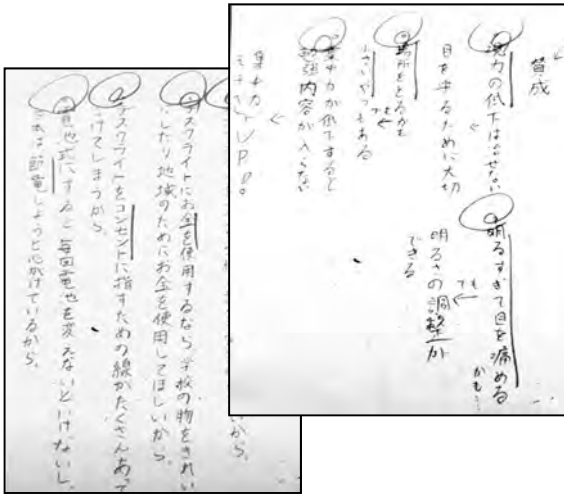 賛成
視力の低下はさせない
目を守るために大切
場所をとるかも
でも
小さいやつもある
集中力が低下すると
勉強内容が入らない
集中力
モチベUP!!
明るすぎて目を痛める
かも…
でも
明るさの調整が
できる
から。
デスクライトにお金を使用するなら学校の物をきれい
にしたり地域のためにお金を使用してほしいから。
デスクライトをコンセントに指すための線がたくさんあって
こけてしまうから。
電池式にすると毎回電池を変えないといけないし、
これは節電しようと心がけているから。